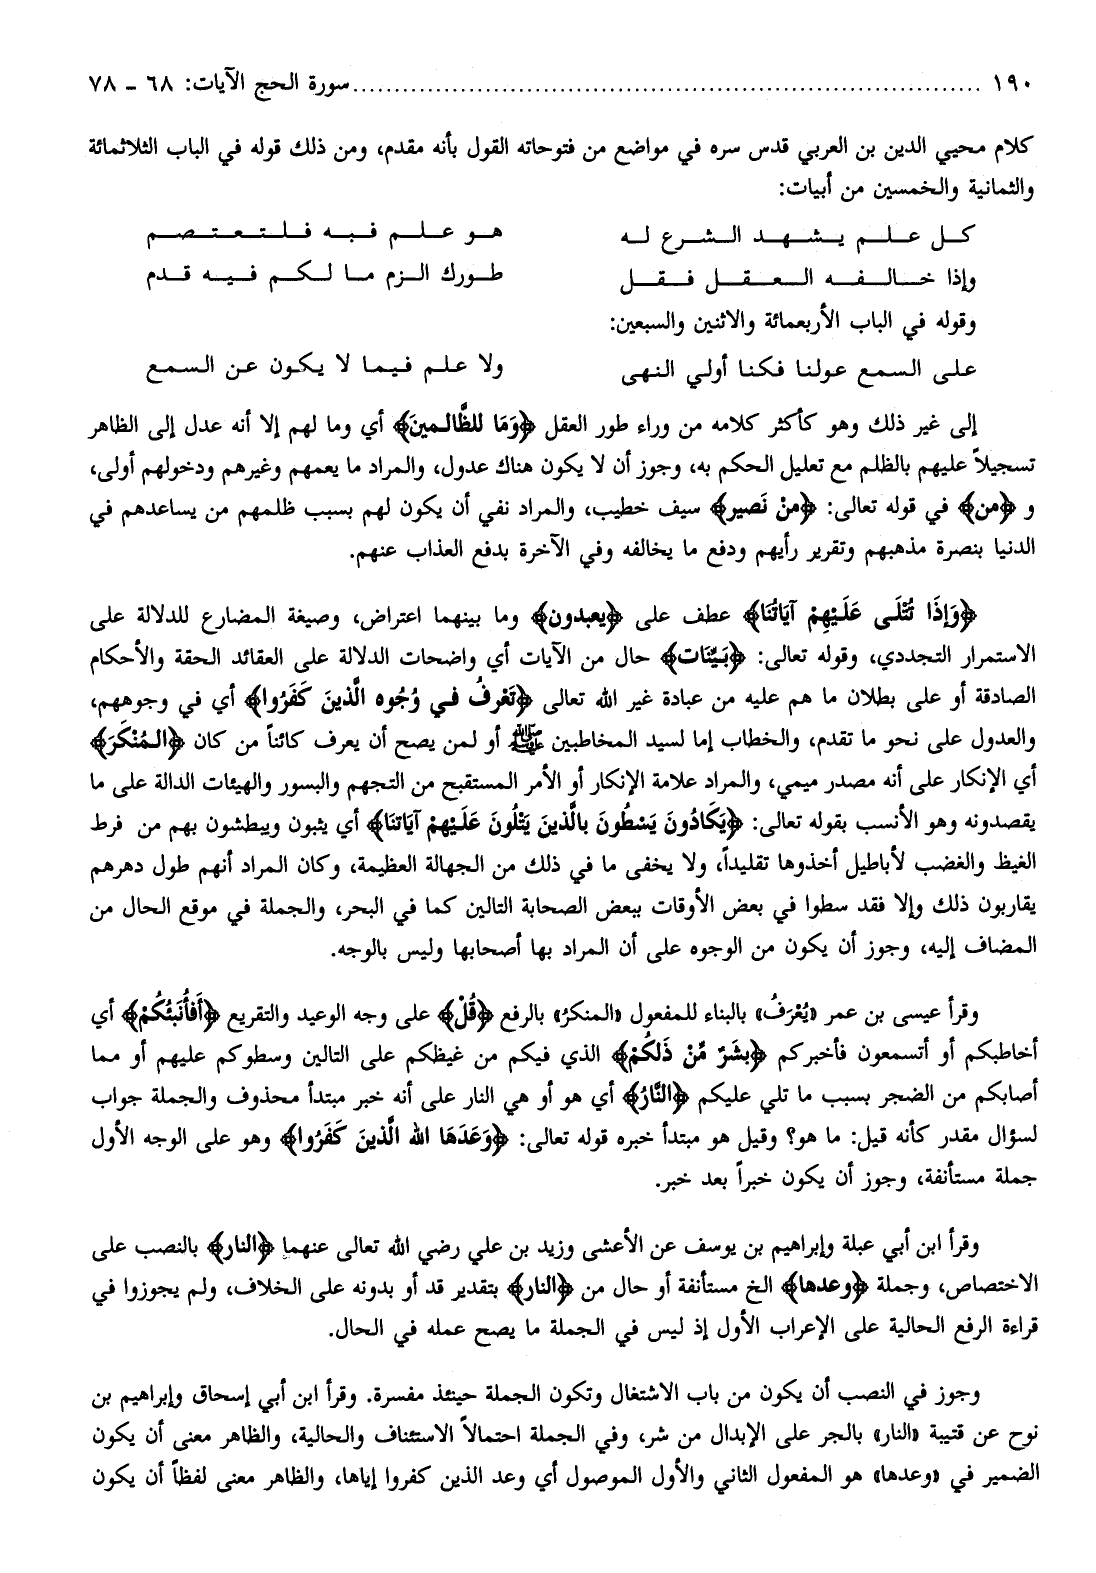 ١٩٠ ........................................ سورة الحج الآيات: ٦٨ - ٧٨
كلام محيي الدين بن العربي قدس سره في مواضع من فتوحاته القول بأنه مقدم، ومن ذلك قوله في الباب الثلاثمائة
والثمانية والخمسين من أبيات:
كل علم يشهد الشرع له هو علم فبه فلتعتصم
وإذا خالفه العقل فقل طورك الزم ما لكم فيه قدم
وقوله في الباب الأربعمائة والاثنين والسبعين:
على السمع عولنا فكنا أولي النهى ولا علم فيما لا يكون عن السمع
إلى غير ذلك وهو كأكثر كلامه من وراء طور العقل ﴿وَمَا للظَّالمينَ﴾ أي وما لهم إلا أنه عدل إلى الظاهر
تسجيلاً عليهم بالظلم مع تعليل الحكم به، وجوز أن لا يكون هناك عدول، والمراد ما يعمهم وغيرهم ودخولهم أولى،
و ﴿من﴾ في قوله تعالى: ﴿منْ نَصير﴾ سيف خطيب، والمراد نفي أن يكون لهم بسبب ظلمهم من يساعدهم في
الدنيا بنصرة مذهبهم وتقرير رأيهم ودفع ما يخالفه وفي الآخرة بدفع العذاب عنهم.
﴿وَإذَا تُتْلَى عَلَيْهمْ آيَاتُنَا﴾ عطف على ﴿يعبدون﴾ وما بينهما اعتراض، وصيغة المضارع للدلالة على
الاستمرار التجددي، وقوله تعالى: ﴿بَيِّنَات﴾ حال من الآيات أي واضحات الدلالة على العقائد الحقة والأحكام
الصادقة أو على بطلان ما هم عليه من عبادة غير الله تعالى ﴿تَعْرفُ في وُجُوه الَّذينَ كَفَرُوا﴾ أي في وجوههم،
والعدول على نحو ما تقدم، والخطاب إما لسيد المخاطبين ﷺ أو لمن يصح أن يعرف كائناً من كان ﴿المُنْكَرَ﴾
أي الإنكار على أنه مصدر ميمي، والمراد علامة الإنكار أو الأمر المستقبح من التجهم والبسور والهيئات الدالة على ما
يقصدونه وهو الأنسب بقوله تعالى: ﴿يَكَادُونَ يَسْطُونَ بالَّذينَ يَتْلُونَ عَلَيْهمْ آيَاتنَا﴾ أي يثبون ويبطشون بهم من فرط
الغيظ والغضب لأباطيل أخذوها تقليداً، ولا يخفى ما في ذلك من الجهالة العظيمة، وكان المراد أنهم طول دهرهم
يقاربون ذلك وإلا فقد سطوا في بعض الأوقات ببعض الصحابة التالين كما في البحر، والجملة في موقع الحال من
المضاف إليه، وجوز أن يكون من الوجوه على أن المراد بها أصحابها وليس بالوجه.
وقرأ عيسى بن عمر «يُعْرَفُ» بالبناء للمفعول «المنكرُ» بالرفع ﴿قُلْ﴾ على وجه الوعيد والتقريع ﴿أَفَأُنَبِّئُكُمْ﴾ أي
أخاطبكم أو أتسمعون فأخبركم ﴿بشَرّ مِّنْ ذَلكُمْ﴾ الذي فيكم من غيظكم على التالين وسطوكم عليهم أو مما
أصابكم من الضجر بسبب ما تلي عليكم ﴿النَّارُ﴾ أي هو أو هي النار على أنه خبر مبتدأ محذوف والجملة جواب
لسؤال مقدر كأنه قيل: ما هو؟ وقيل هو مبتدأ خبره قوله تعالى: ﴿وَعَدَهَا الله الَّذينَ كَفَرُوا﴾ وهو على الوجه الأول
جملة مستأنفة، وجوز أن يكون خبراً بعد خبر.
وقرأ ابن أبي عبلة وإبراهيم بن يوسف عن الأعشى وزيد بن علي رضي الله تعالى عنهما ﴿النار﴾ بالنصب على
الاختصاص، وجملة ﴿وعدها﴾ الخ مستأنفة أو حال من ﴿النار﴾ بتقدير قد أو بدونه على الخلاف، ولم يجوزوا في
قراءة الرفع الحالية على الإعراب الأول إذ ليس في الجملة ما يصح عمله في الحال.
وجوز في النصب أن يكون من باب الاشتغال وتكون الجملة حينئذ مفسرة. وقرأ ابن أبي إسحاق وإبراهيم بن
نوح عن قتيبة «النار» بالجر على الإبدال من شر، وفي الجملة احتمالاً الاستئناف والحالية، والظاهر معنى أن يكون
الضمير في «وعدها» هو المفعول الثاني والأول الموصول أي وعد الذين كفروا إياها، والظاهر معنى لفظاً أن يكون